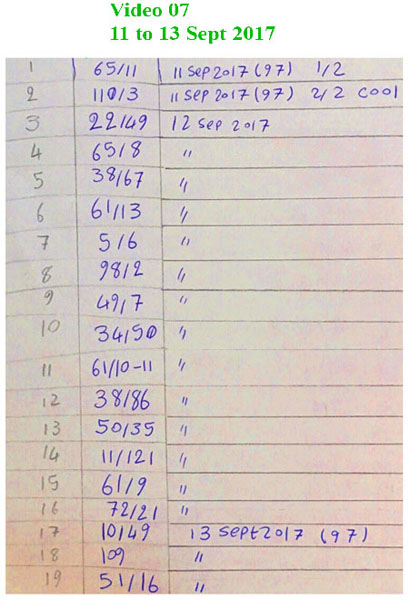 Video 07
11 to 13 Sept 2017
1 65/11 11 Sep 2017 (97) 1/2
2 110/3 11 Sep 2017 (97) 2/2 cool
3 22/49 12 Sep 2017
4 65/8 "
5 38/67 "
6 61/13 "
7 5/6 "
8 98/2 "
9 49/7 "
10 34/50 "
11 61/10-11 "
12 38/86 "
13 50/35 "
14 11/121 "
15 61/9 "
16 72/21 "
17 10/49 13 Sept 2017 (97)
18 109 "
19 51/16 "